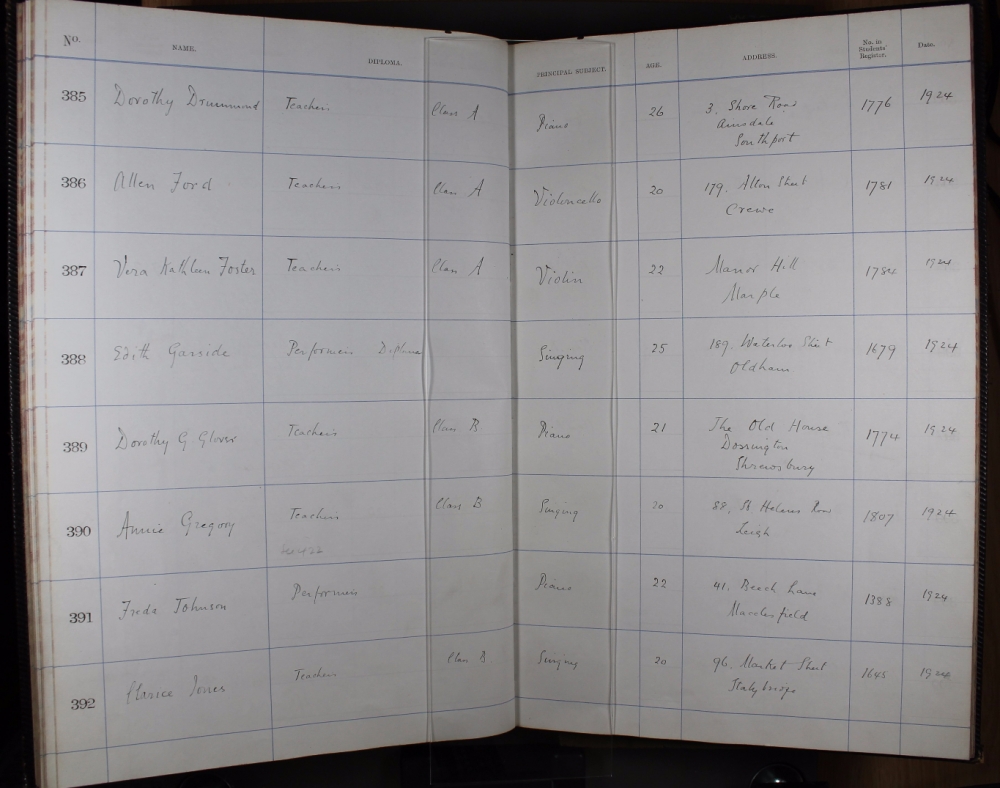 No. NAME. DIPLOMA. PRINCIPAL SUBJECT. AGE. ADDRESS. No. in Students' Register. Date.
385 Dorothy Drummond Teachers Class A Piano 26 3, Shore Road 1776 1924
Ainsdale
Southport
386 Allen Ford Teachers Class A Violoncello 20 179, Alton Street 1781 1924
Crewe
387 Vera Kathleen Foster Teachers Class A Violin 22 Manor Hill 1784 1924
Marple
388 Edith Garside Performers Diploma Singing 25 189, Waterloo Street 1679 1924
Oldham
389 Dorothy G Glover Teachers Class B Piano 21 The Old House 1774 1924
Dorrington
Shrewsbury
390 Annie Gregory Teachers Class B Singing 20 88, St Helens Row 1807 1924
Leigh
391 Freda Johnson Performers Piano 22 41, Beech Lane 1388 1924
Macclesfield
392 Clarice Jones Teachers Class B Singing 20 96, Market Street 1645 1924
Stalybridge